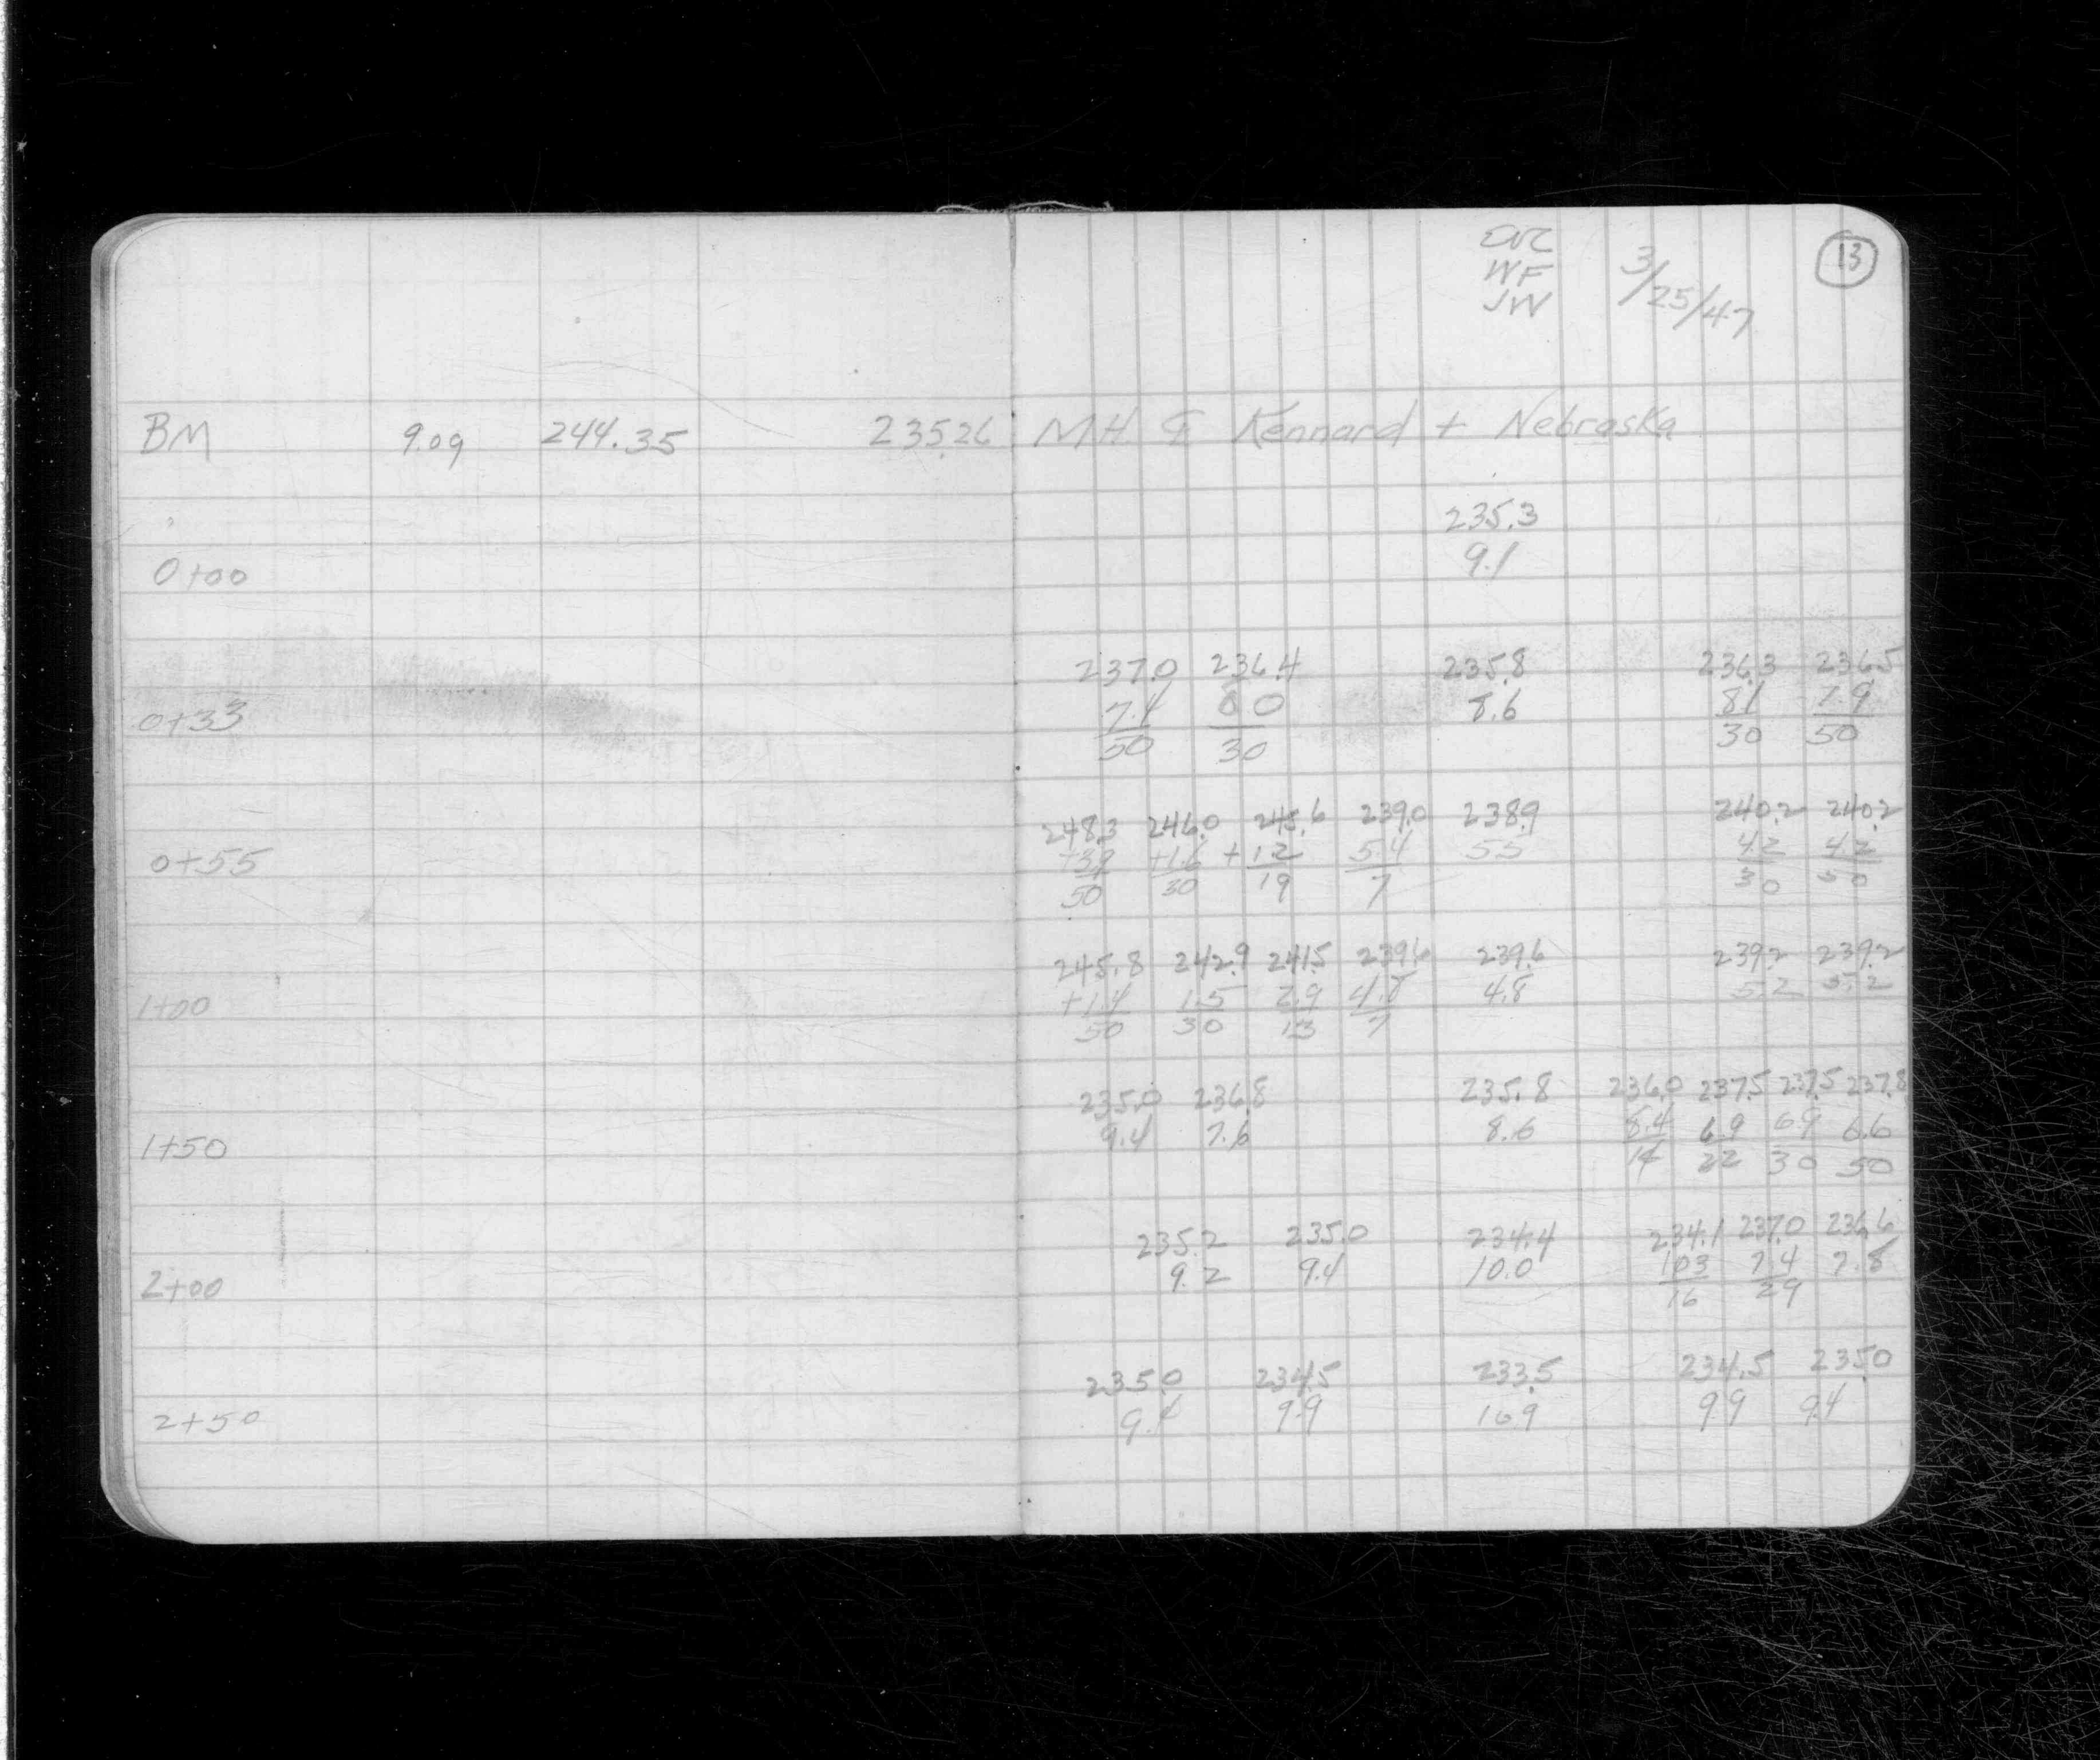 WF 3/25/47 13
JW
BM 9.09 244.35 235.26 MH ℄ Kennard + Nebraska
235.3
0+00 9.1
237.0 236.4 235.8 236.3 236.5
0+33 7.4 8.0 8.6 8.1 7.9
50 30 30 50
248.3 246.0 245.6 239.0 238.9 240.2 240.2
0+55 +3.9 +1.6 +1.2 5.4 5.5 4.2 4.2
50 30 19 7 30 50
245.8 242.9 241.5 239.6 239.6 239.2 239.2
1+00 +1.4 1.5 2.9 4.8 4.8 5.2 5.2
50 30 13 7
235.0 236.8 235.8 236.0 237.5 237.5 237.8
1+50 9.4 7.6 8.6 8.4 6.9 6.9 6.6
14 22 30 50
235.2 235.0 234.4 234.1 237.0 236.6
2+00 9.2 9.4 10.0 10.3 7.4 7.8
16 29
235.0 234.5 233.5 234.5 235.0
2+50 9.4 9.9 10.9 9.9 9.4